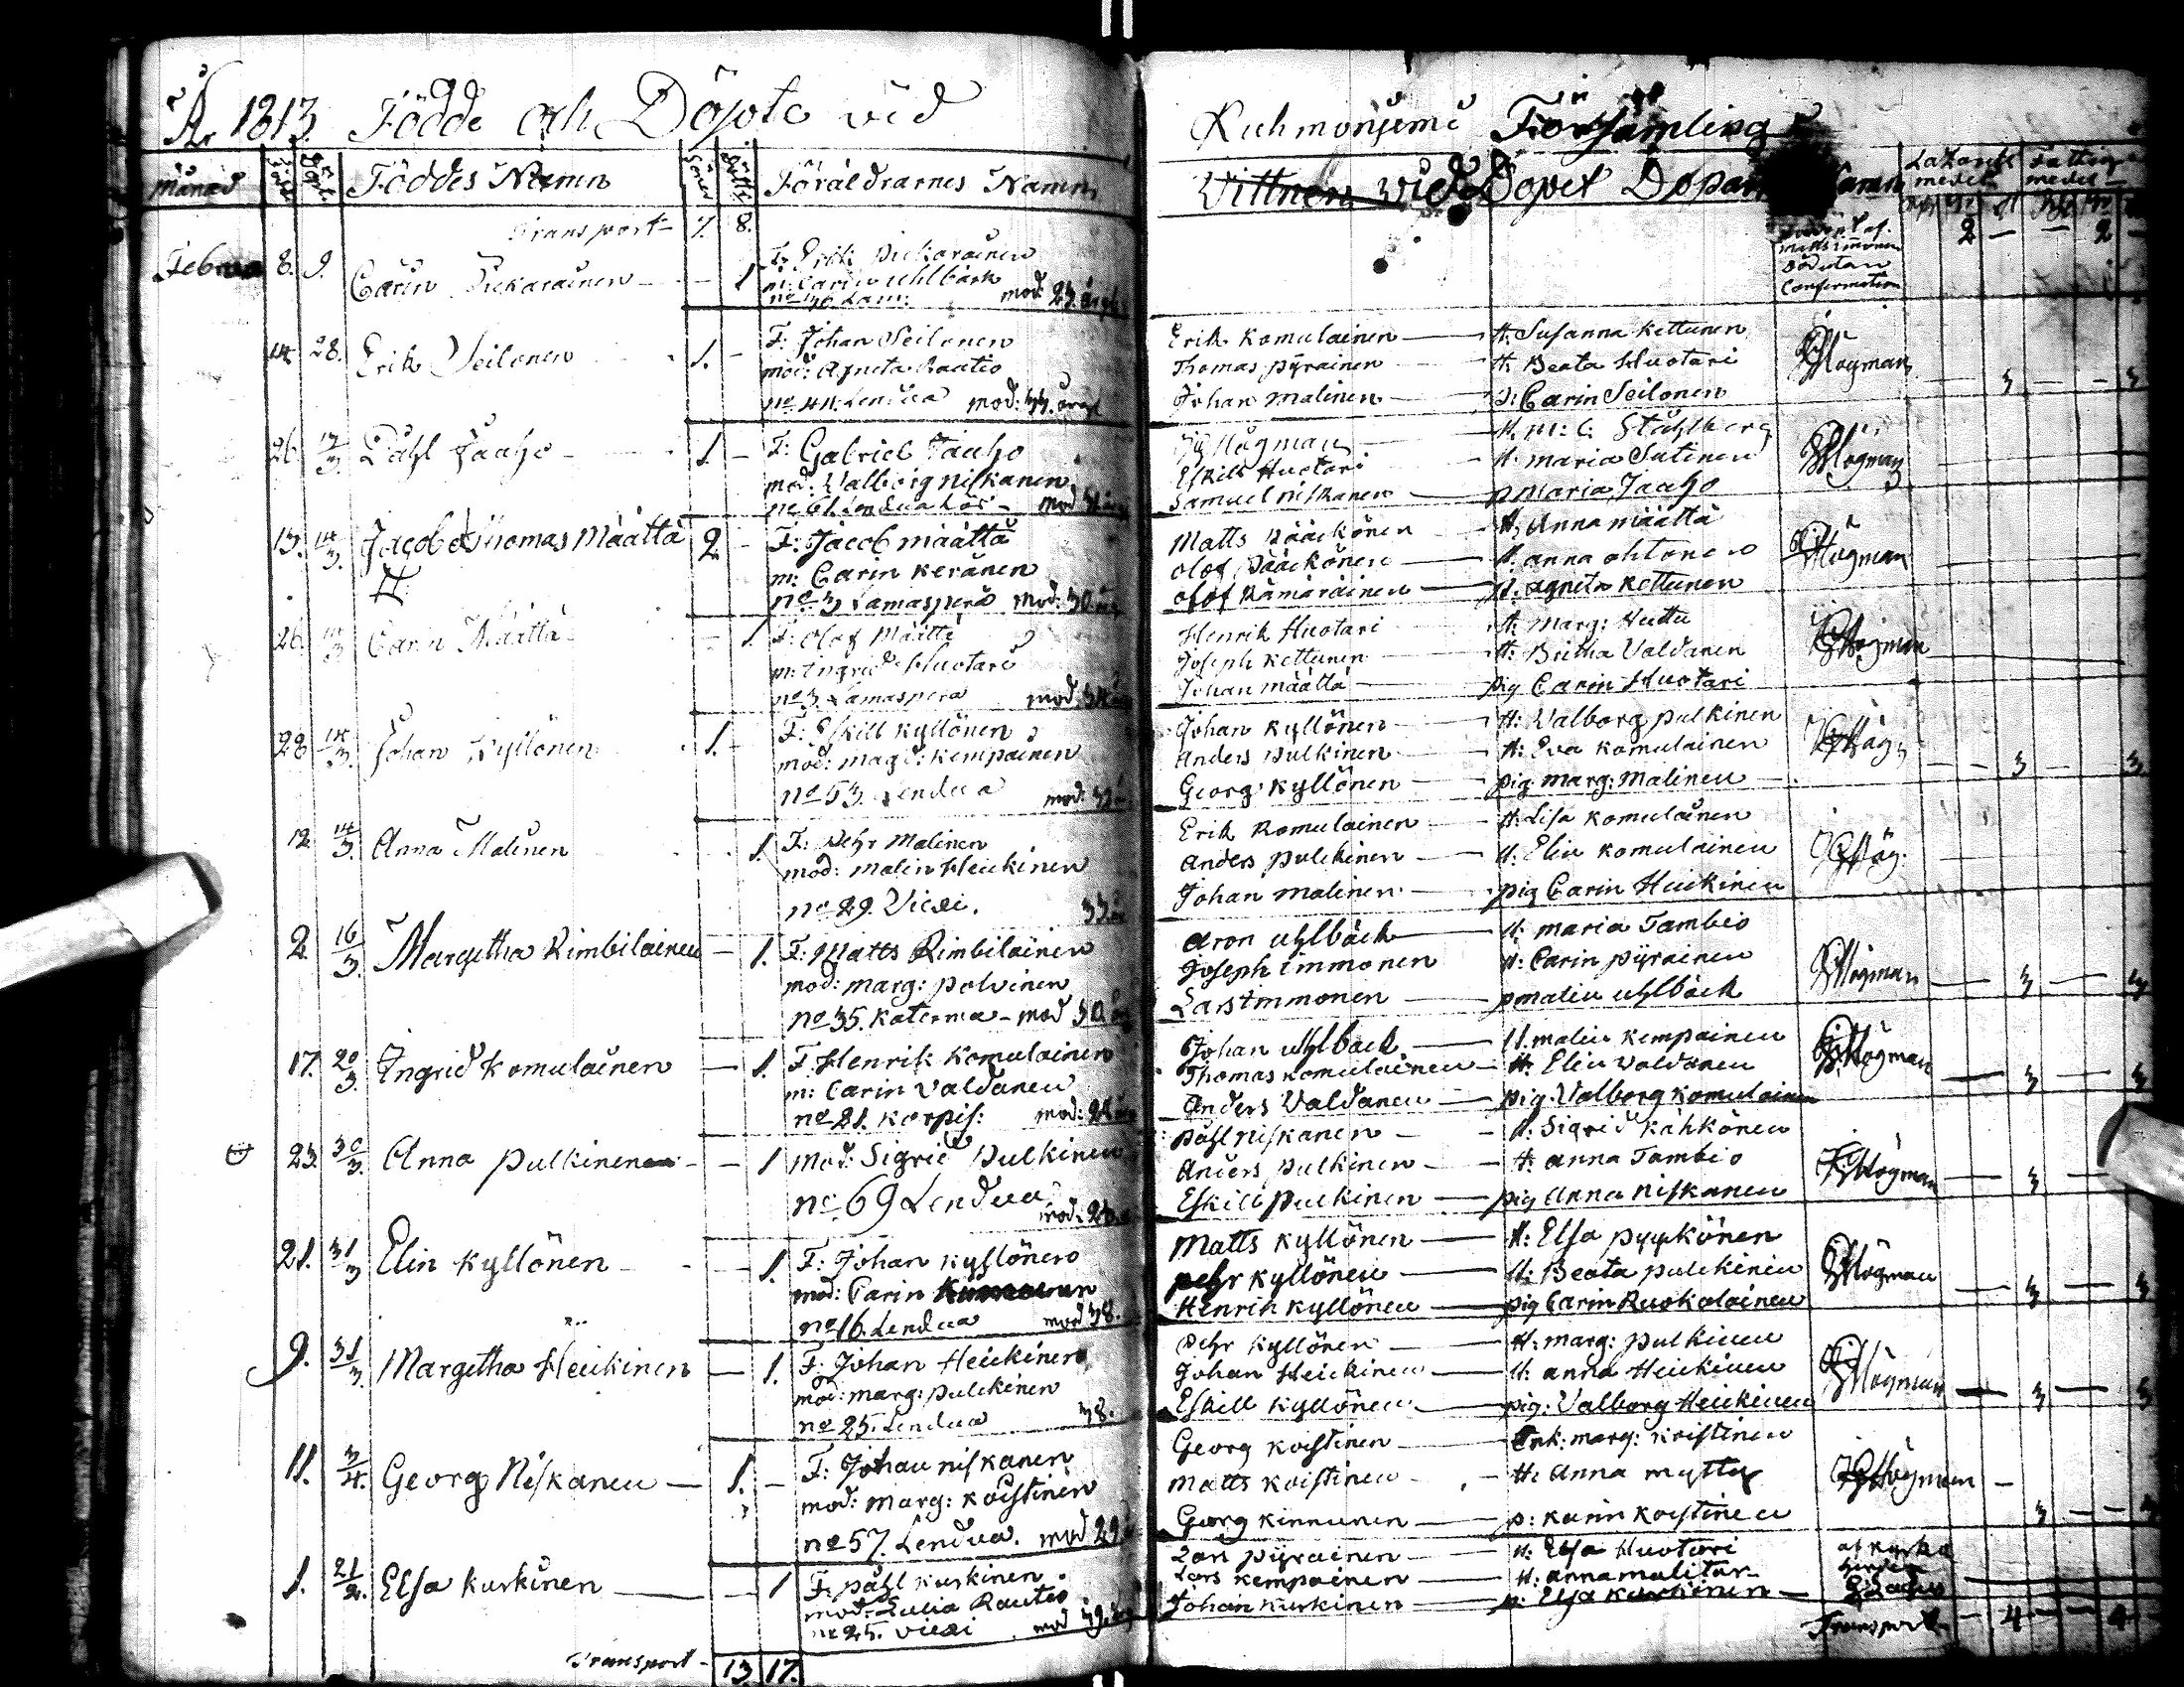 Åhr 1813. Födde och Döpte vid
Månad Född Döpt Föddes Namn Söner Döttr. Föräldrarnes Namn
Transport 7. 8.
Februa 8. 9. Carin Pickarainen 1 F: Erik Pickarainen
m: Carin Uhlbäck
no 36 Lam: mod 23 år
14 28. Erik Seilonen 1. F: Johan Seilonen
mod: Agneta Rautio
no 44. Lendua mod: 33. år
26. 13/3 Påhl Jaaho 1. F: Gabriel Jaaho
mod: Walborg Niskanen
no 61 Lendua
13. 14/3. Jacob & Thomas Määttä 2 F: Jacob Määttä
m: Carin Keränen
no 3 Lamasperä mod: 30 år
26. 14/3 Carin Määttä 1. F: Olof Määttä
m: Ingrid Huotari
no 3. Lamasperä mod: 34
28 14/3. Johan Kyllönen 1. F: Eskill Kyllönen
mod: Magd: Kempainen
no 53. Lendua mod: 33
12 14/3. Anna Malinen 1. F: Pehr Malinen
mod: Malin Heickinen
no 29. Viexi. 33 år
2. 16/3. Margetha Rimbilainen 1. F: Matts Rimbilainen
mod: Marg: Polvinen
no 35. Katerma mod 30
17. 20/3. Ingrid Komulainen 1. F. Henrik Komulainen
m: Carin Valdanen
no 21. Korpis: mod: 28
23. 30/3. Anna Pulkinen 1 Mod: Sigrid Pulkinen
no 69 Lendua
21. 31/3 Elin Kyllönen 1. F: Johan Kyllönen
mod: Carin
no 16. Lendua mod 38.
9. 31/3. Margetha Heickinen 1. F: Johan Heickinen
mod: Marg: Pulckinen
no 25. Lendua 38.
11. 3/4. Georg Niskanen 1. F: Johan Niskanen
mod: Marg: Koistinen
no 57. Lendua. mod 29
1. 21/2. Elsa Kurkinen 1 F: Påhl Kurkinen
mod: Rautio
no 25. Viexi mod 39 år
Transport 13 17.
Kuhmoniemi Församling
Vittnen vid Dopet Döparens Namn Lazaretts medel Fattig medel
2 2
Confirmation
Erik Komulainen H. Susanna Kettunen
Thomas Pyrainen H. Beata Huotari Högman
Johan Malinen p: Carin Seilonen 3 3
Högman H. M: C: Ståhlberg
Eskill Huotari H. Maria Sutinen Högman
Samuel Niskanen p Maria Jaaho
Matts Pääckönen H. Anna Määttä
Olof Pääckönen H. Anna Ahtonen Högman
Olof Kämäräinen p. Agneta Kettunen
Henrik Huotari H. Marg: Huttu
Joseph Kettunen H. Britha Valdanen Högman
Johan Määttä pig Carin Huotari
Johan Kyllönen H: Walborg Pulkinen
Anders Pulkinen H: Eva Komulainen Hög
Georg Kyllönen pig Marg: Malinen 3 3
Erik Komulainen H. Lisa Komulainen
Anders Pulckinen H. Elin Komulainen Hög.
Johan Malinen pig Carin Heickinen
Aron Uhlbäck H: Maria Tambio
Joseph Immonen H: Carin Pyrainen Högman
Lars Immonen p Malin Uhlbäck 3 3
Johan Uhlbäck H. Malin Kempainen
Thomas Komulainen H. Elin Valdanen Högman
Anders Valdanen pig: Valborg Komulainen 3 3
Påhl Niskanen H: Sigrid Kähkönen
Anders Pulkinen H: Anna Tambio Högman
Eskill Pulkinen pig Anna Niskanen 3
Matts Kyllönen H: Elsa Pyykönen
Pehr Kyllönen H: Beata Pulckinen Högman
Henrik Kyllönen pig Carin Ruokolainen 3 3
Pehr Kyllönen H: Marg: Pulkinen
Johan Heickinen H: Anna Heickinen Högman
Eskill Kyllönen pig: Valborg Heickinen 3 3
Georg Koistinen Enk: Marg: Koistinen
Matts Koistinen H: Anna Mytty Högman
Georg Kinnunen p: Karin Koistinen 3
Lars Pyrainen H: Elsa Huotari
Lars Kempainen H: Anna
Johan Kurkinen p: Elsa Kurkinen
Transport 4 4